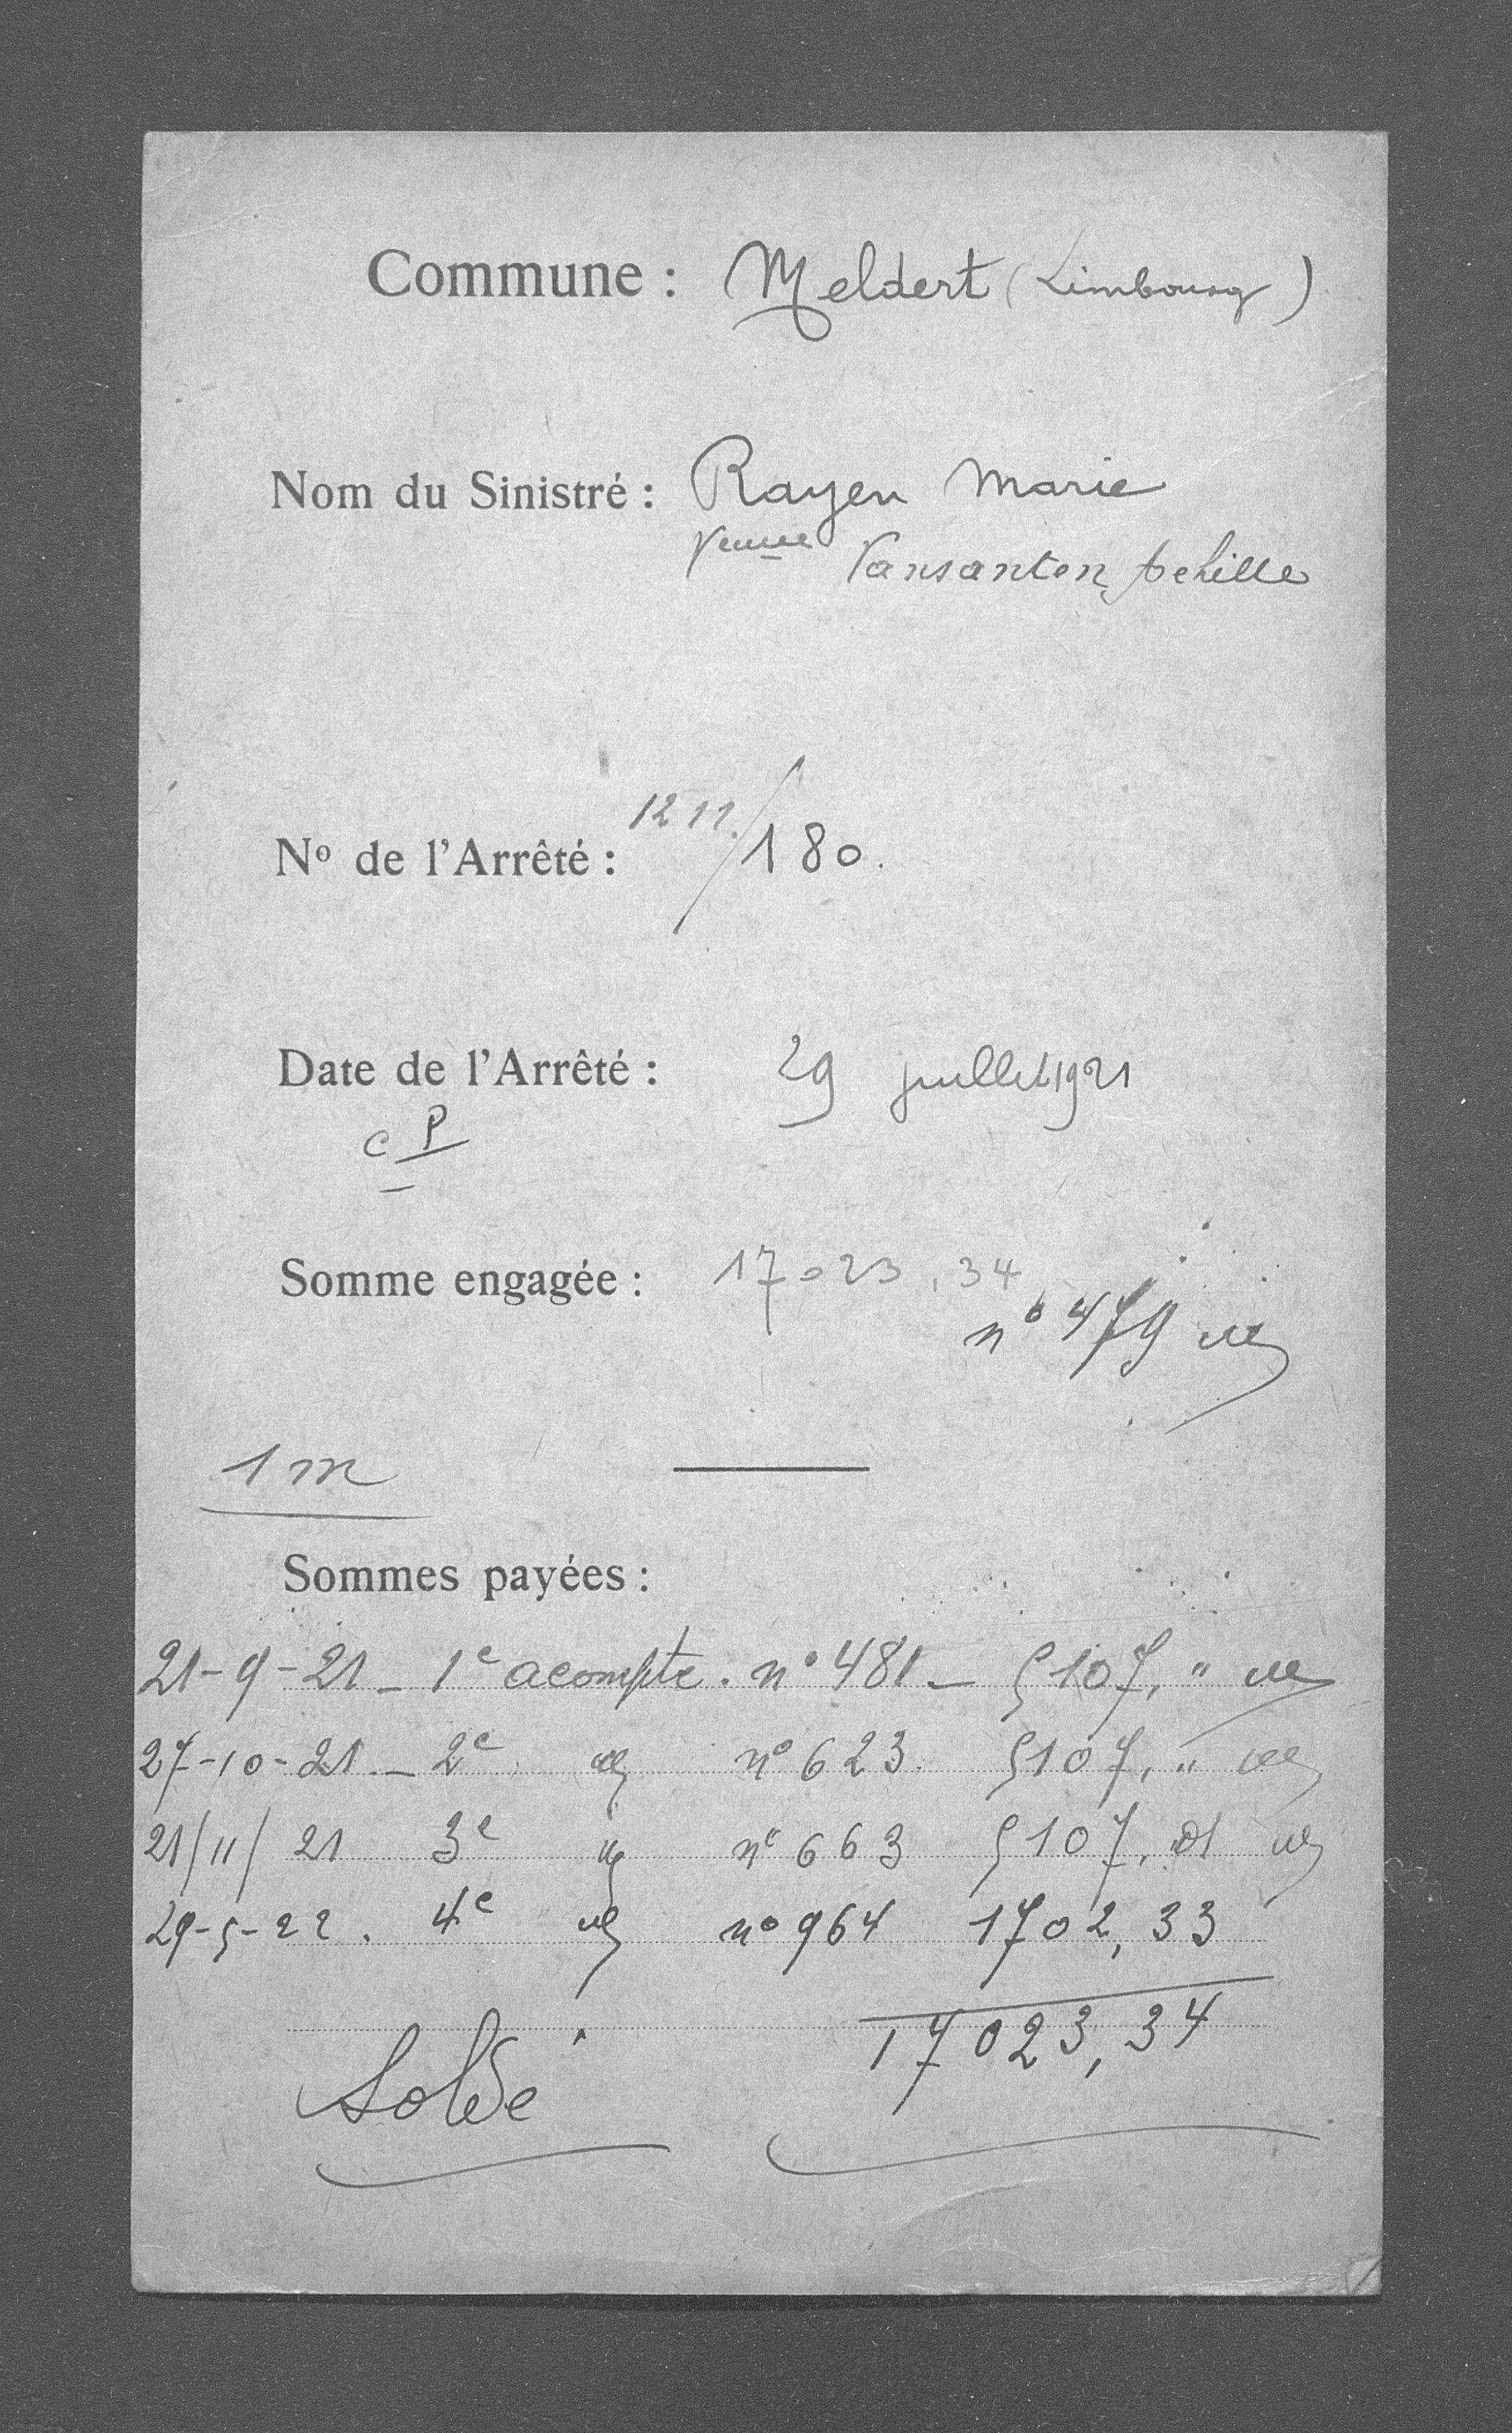 Commune : Meldert (Limbourg)
Nom du Sinistré : Rayen Marie
Veuve Vansanten, Achille
No de l'Arrêté : 1211./180.
Date de l'Arrêté : 29 juillet 1921
c P
Somme engagée : 17023,34
n° 479
1 m
Sommes payées :
21-9-21 - 1e acompte. n° 481 - 5107, "
27-10-21 - 2e n° 623. 5107, "
21/11/21 3e n° 663 5107,01
29-5-22. 4e n° 964 1702,33
17023,34
Solde